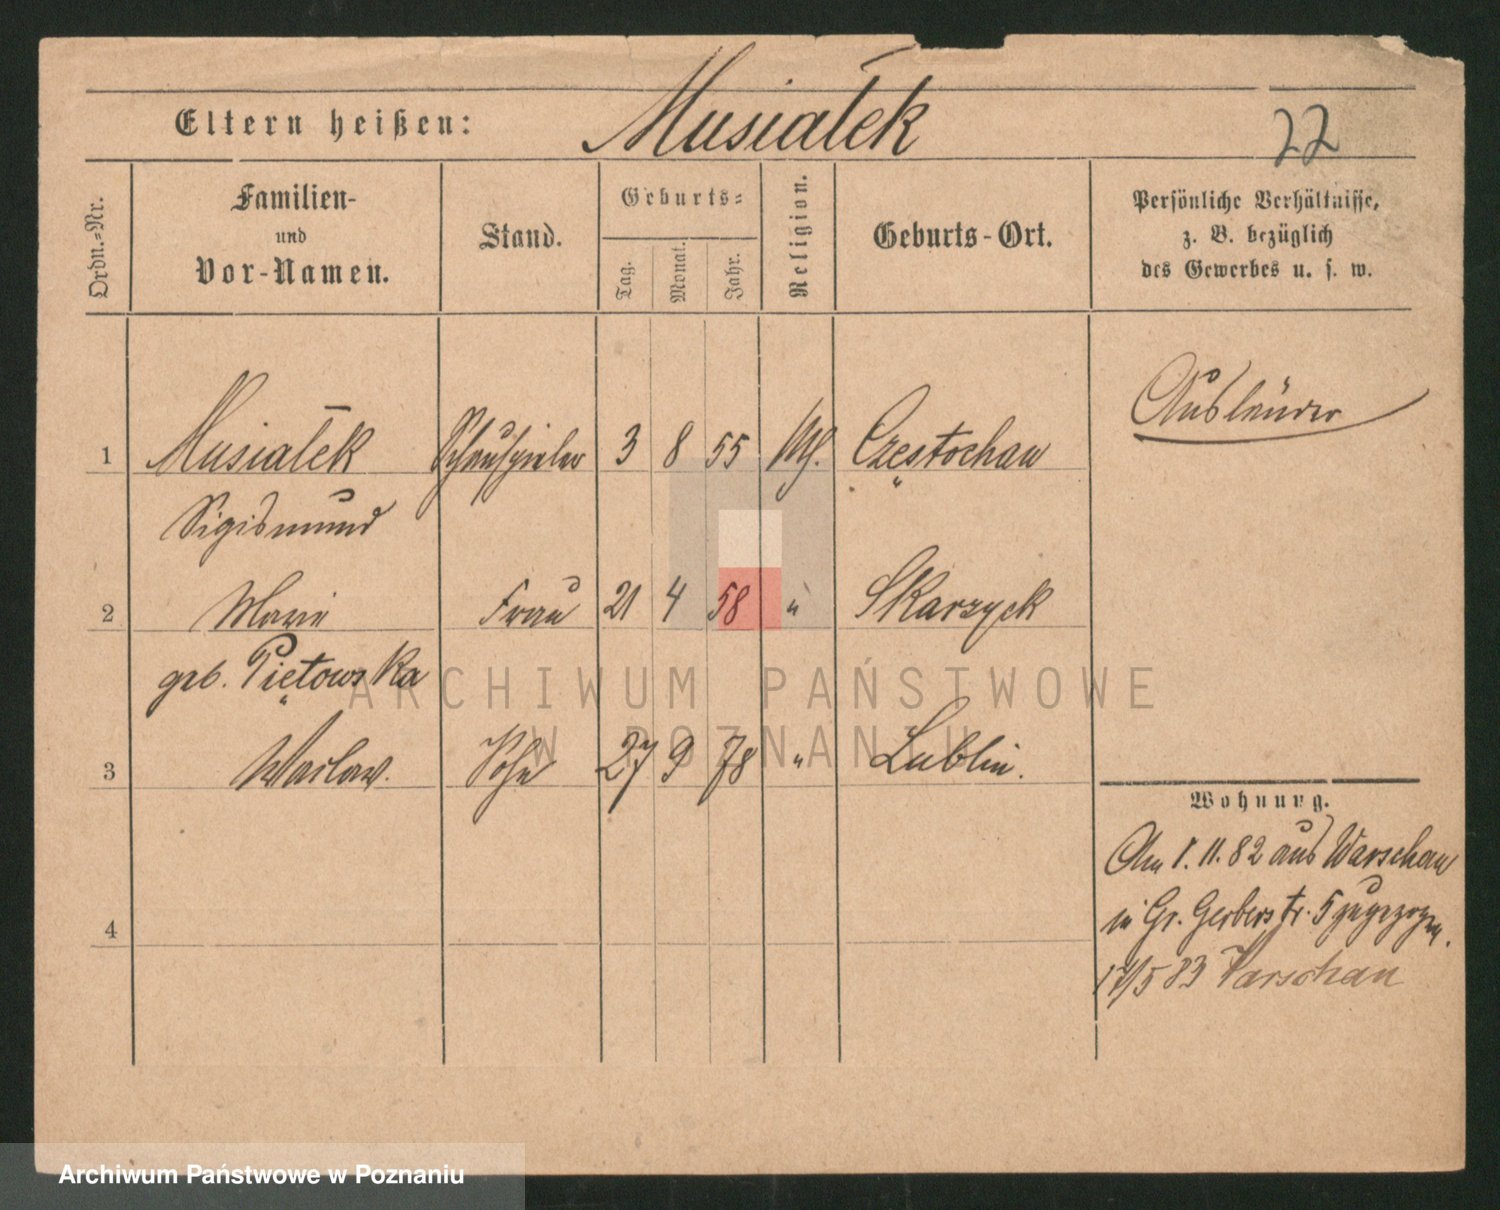 Eltern heißen: Musiałek 22
Ordn.=Nr.
Familien-
und
Vor-Namen.
Stand.
Geburts=
Tag. Monat. Jahr.
Religion.
Geburts-Ort.
Persönliche Verhältnisse,
z. B. bezüglich
des Gewerbes u. s. w.
Ausländer
1 Musiałek Schauspieler 3 8 55 Czestochau
Sigismund
2 Marie Frau 21 4 58 " Skarzyck
geb. Piętowska
3 Waclaw. Sohn 27 9 78 " Lublin.
4
Wohnung.
Am 1.11.82 aus Warschau
in Gr. Gerberstr. 5 zugezogen.
17/5 83 Warschau
ARCHIWUM PAŃSTWOWE
W POZNANIU
Archiwum Państwowe w Poznaniu